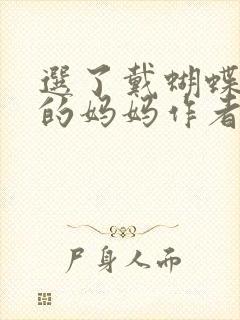 選了戴蝴蝶
的妈妈作者
尸身人而